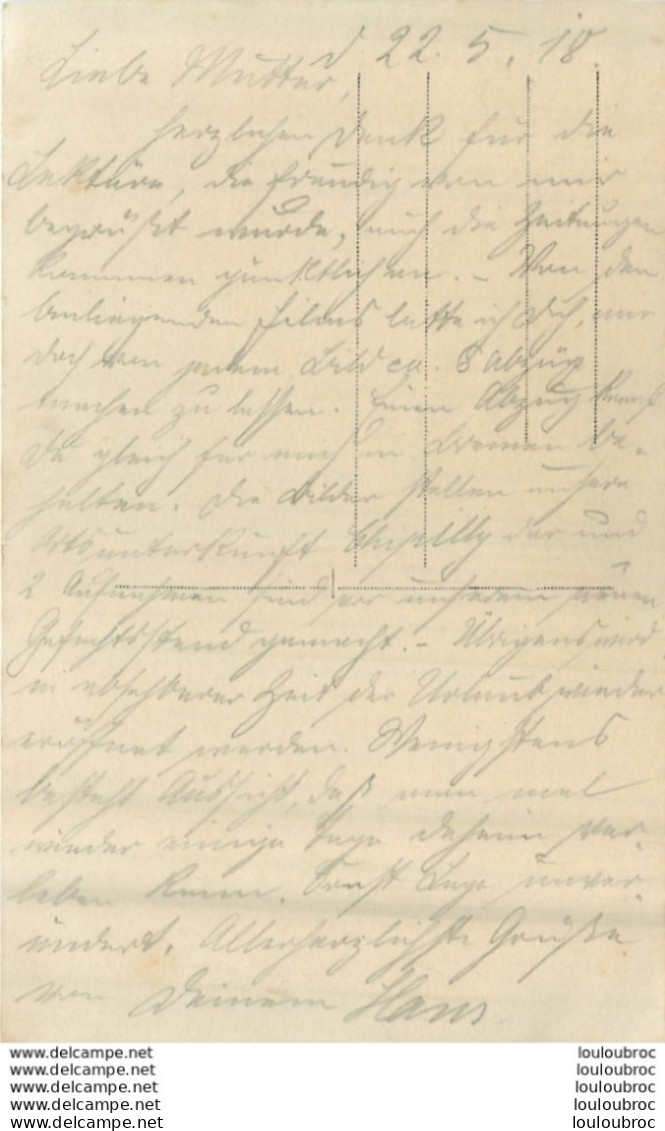 d 22.5.18.
Liebe Mutter,
herzlichen Dank für die
Lektüre, die freudig von mir
begrüßt wurde, auch die Zeitungen
kommen pünktlich an. – Von den
beiliegenden Films bitte ich Dich, mir
doch von jedem Bild ca. 8 Abzüge
machen zu lassen. Einen Abzug kannst
Du gleich für mich in Bremen be-
halten. Die Bilder stellen unsere
Ortsunterkunft Chipilly dar und
2 Aufnahmen sind vor unserem neuen
Gefechtsstand gemacht. – Übrigens wird
in absehbarer Zeit der Urlaub wieder
eröffnet werden. Wenigstens
besteht Aussicht, daß man mal
wieder einige Tage daheim ver-
leben kann. Sonst Lage unver-
ändert. Allerherzlichste Grüße
von Deinem Hans
www.delcampe.net
www.delcampe.net
www.delcampe.net
www.delcampe.net
www.delcampe.net
louloubroc
louloubroc
louloubroc
louloubroc
louloubroc